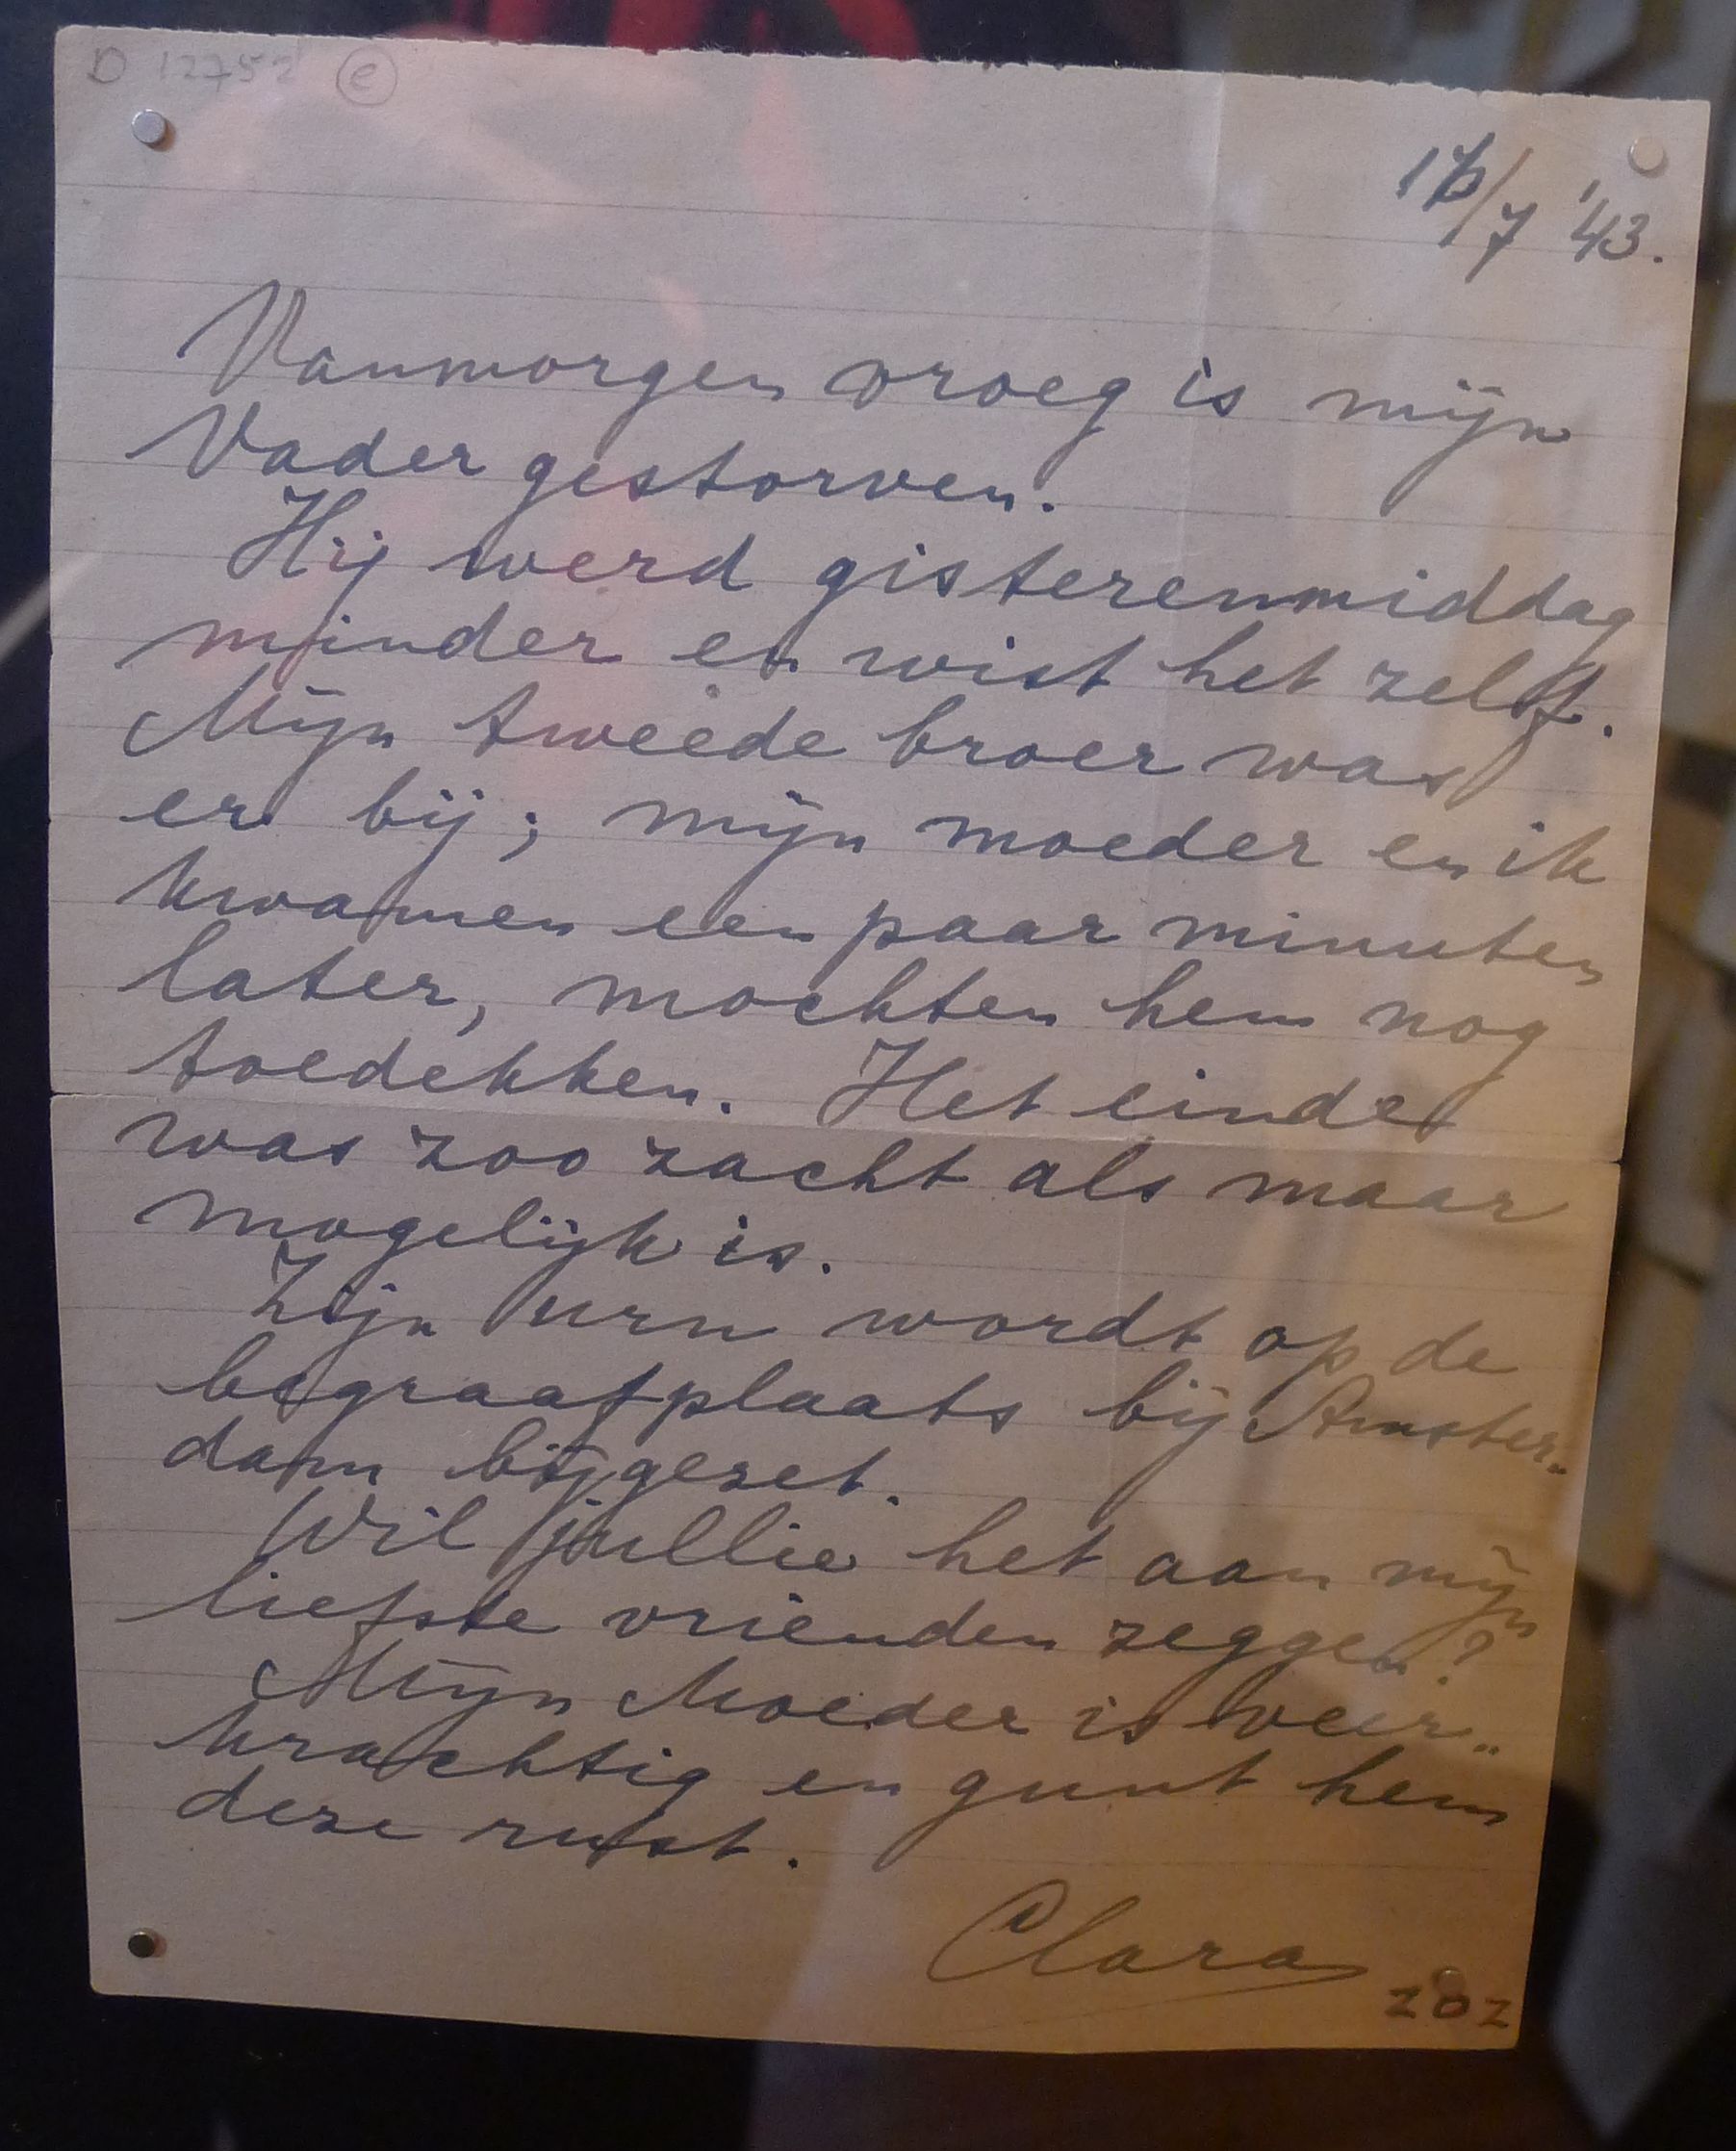 D 12752 e
16/7 '43.
Vanmorgen vroeg is mijn
Vader gestorven.
Hij werd gisterenmiddag
minder en wist het zelf.
Mijn tweede broer was
er bij; mijn moeder en ik
kwamen een paar minuten
later, mochten hem nog
toedekken. Het einde
was zoo zacht als maar
mogelijk is.
Zijn urn wordt op de
begraafplaats bij Amster-
dam bijgezet.
Wil jullie het aan mijn
liefste vrienden zeggen?
Mijn Moeder is veer-
krachtig en gunt hem
deze rust.
Clara
z o z